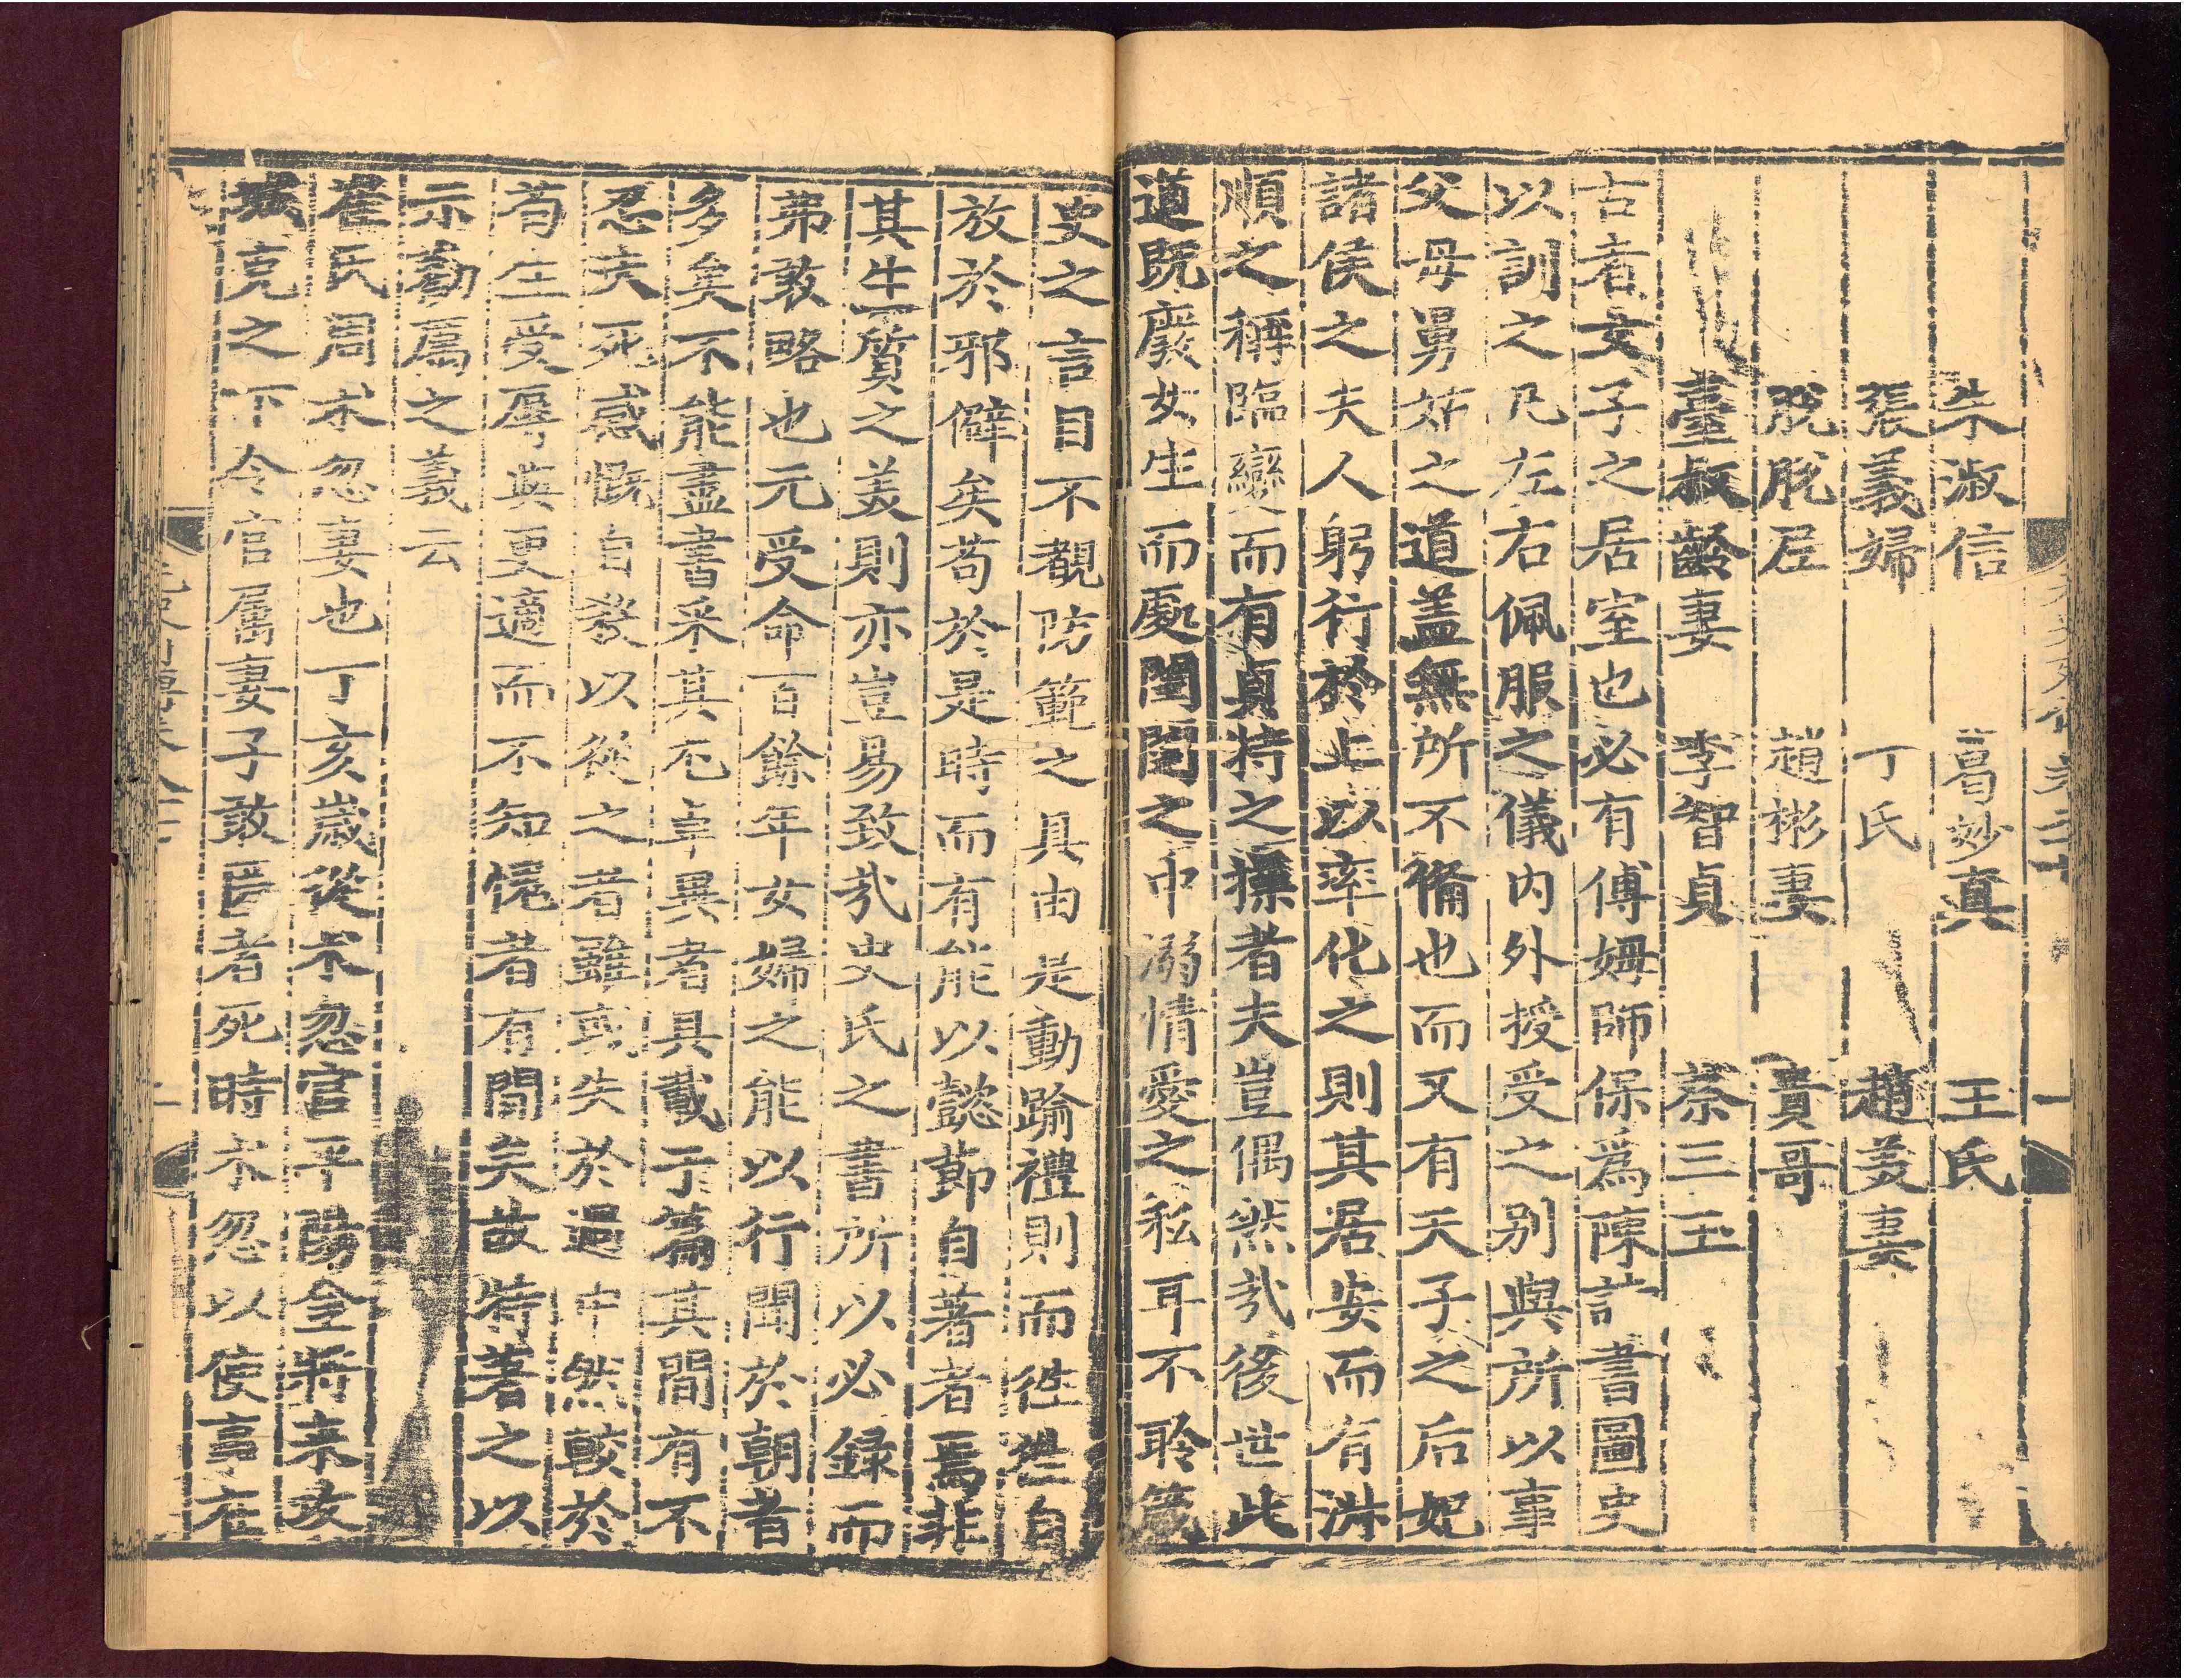 朱淑信　葛妙真　王氏
張義婦　丁氏　趙美妻
脫脫尼　趙彬妻　貴哥
臺叔齡妻　李智貞　蔡三玉
古者女子之居室也必有傅姆師保為陳詩書圖史
以訓之凡左右佩服之儀內外授受之别與所以事
父母舅姑之道蓋無所不備也而又有天子之后妃
諸侯之夫人躬行於上以率化之則其居安而有淑
順之稱臨變而有貞特之操者夫豈偶然哉後世此
道既廢女生而處閨閫之中溺情愛之私耳不聆箴
史之言目不覩防範之具由是動踰禮則而徃徃自
放於邪僻矣苟於是時而有能以懿節自著者焉非
其生質之美則亦豈易致哉史氏之書所以必録而
弗敢略也元受命百餘年女婦之能以行聞於朝者
多矣不能盡書采其尤卓異者具載于篇其間有不
忍夫死感慨自殺以從之者雖或失於過中然較於
苟生受辱與更適而不知愧者有間矣故特著之以
示勸厲之義云
崔氏周朮忽妻也丁亥歲從朮忽官平陽金將來攻
城克之下令官屬妻子敢匿者死時朮忽以使事在